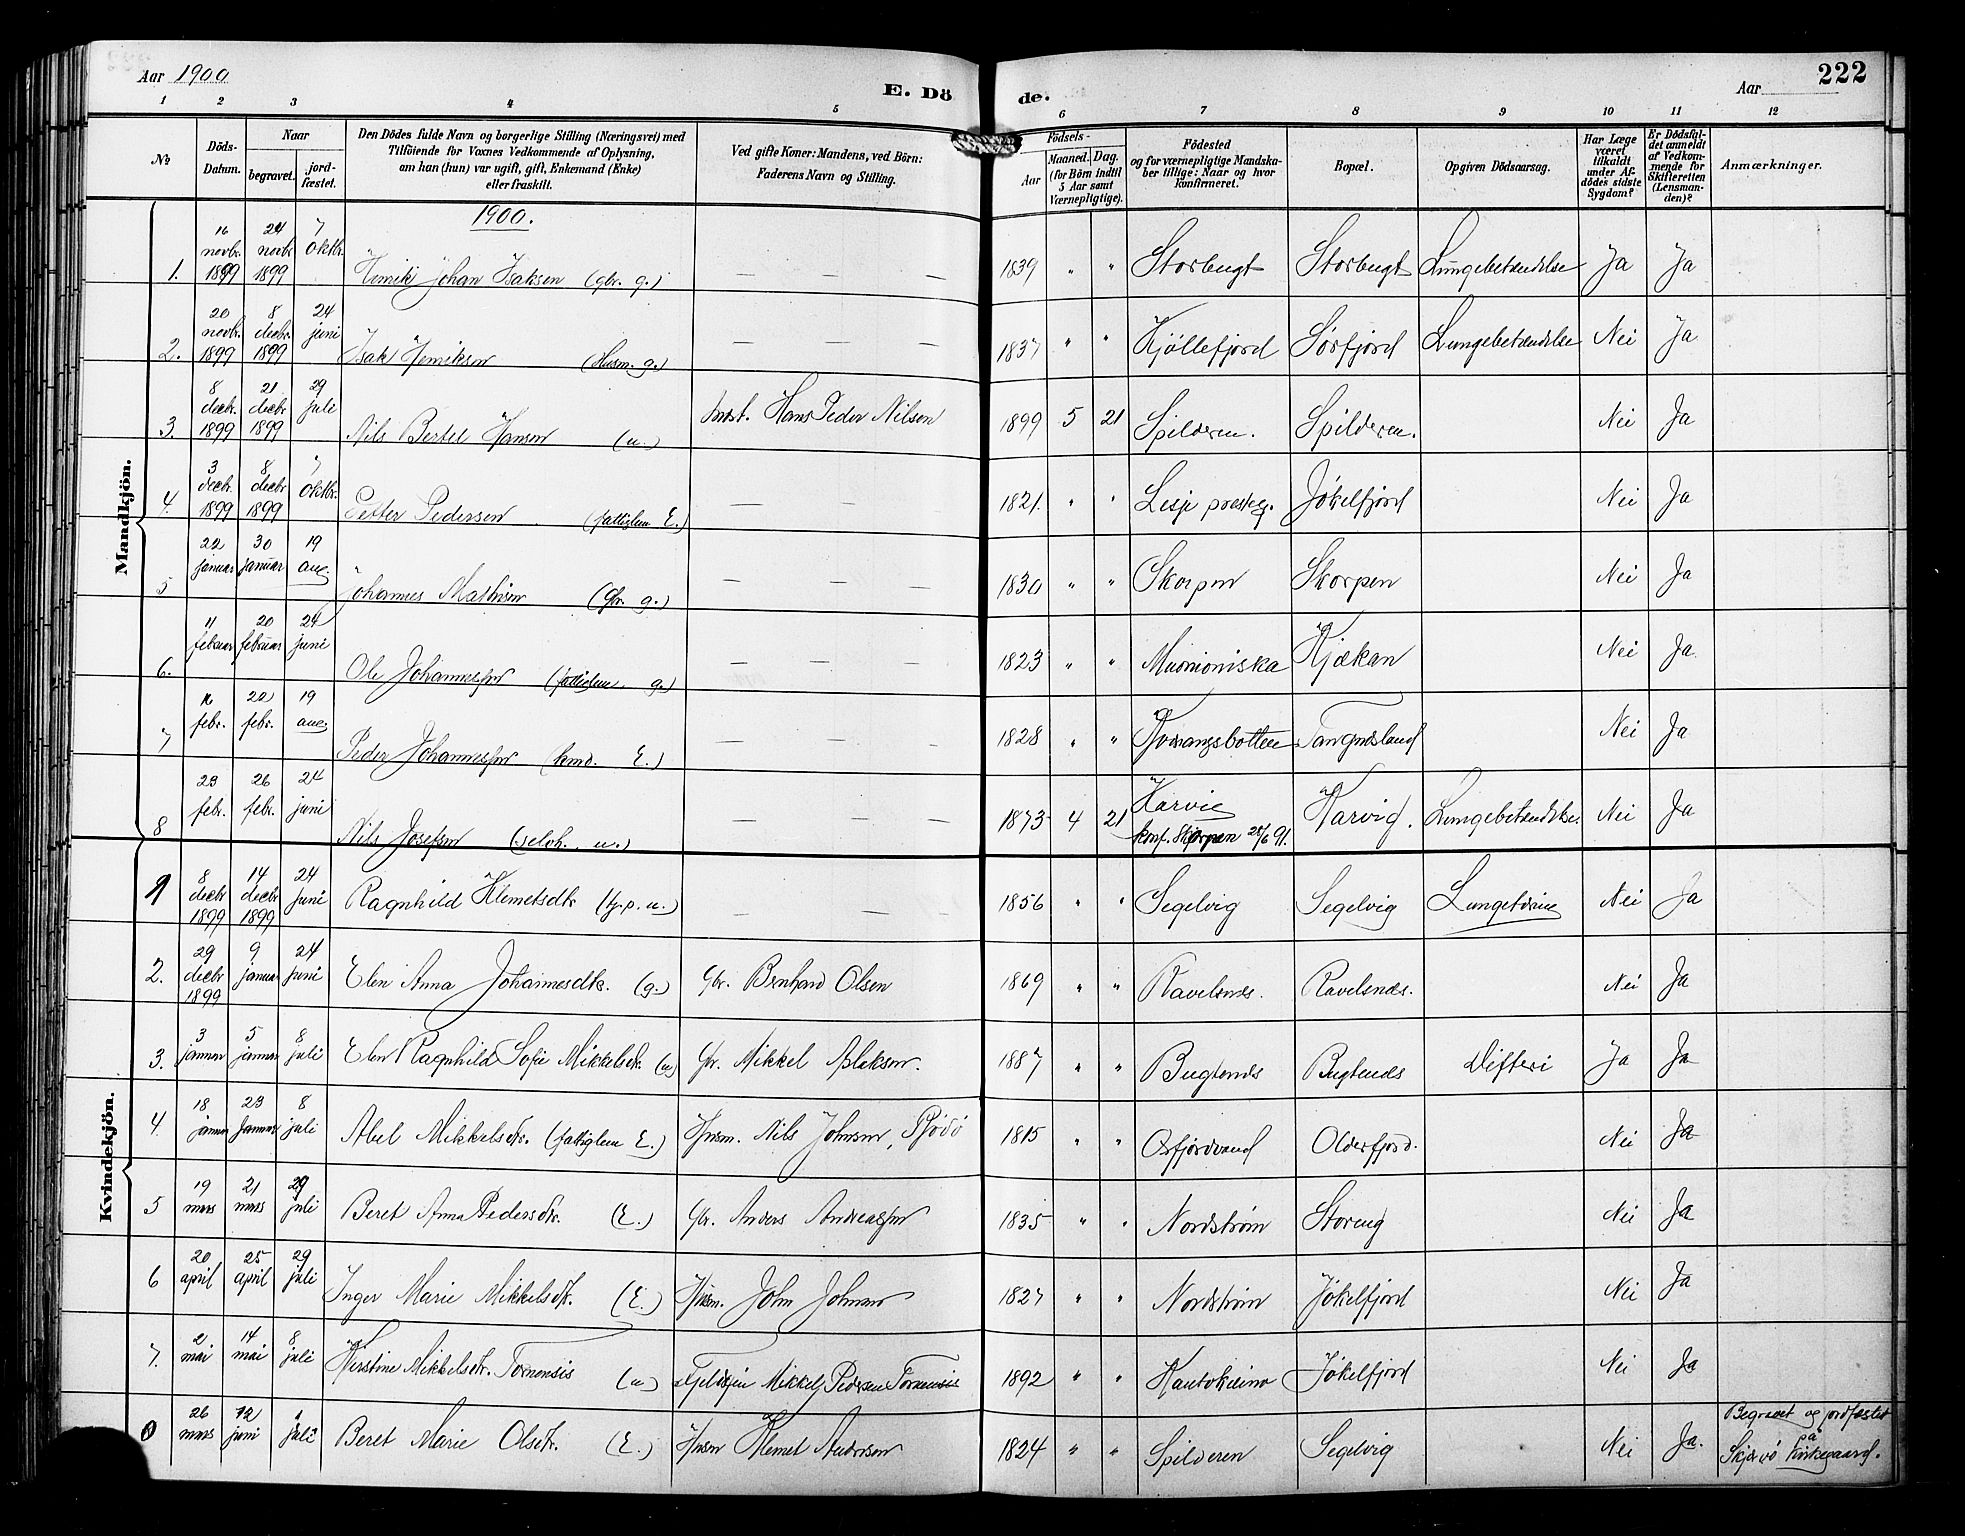 Aar 1900
E. Dö
de.
Aar
222
1 2 3 4 5 6 7 8 9 10 11 12
No
Döds-
Datum.
Naar
begravet.
jord-
fæstet.
Den Dödes fulde Navn og borgerlige Stilling (Næringsvei) med
Tilföiende for Voxnes Vedkommende af Oplysning,
om han (hun) var ugift, gift, Enkemand (Enke)
eller fraskilt.
Ved gifte Koner: Mandens, ved Börn:
Faderens Navn og Stilling.
Födsels-
Aar
Maaned. Dag.
(for Börn indtil
5 Aar samt
Værnepligtige).
Födested
og for værnepligtige Mandska-
ber tillige: Naar og hvor
konfirmeret.
Bopæl.
Opgiven Dödsaarsag.
Har Læge
været
tilkaldt
under Af-
dödes sidste
Sygdom?
Er Dödsfal-
det anmeldt
af Vedkom-
mende for
Skifteretten
(Lensman-
den)?
Anmærkninger.
Mandkjön.
1900.
1. 16 novbr. 1899 24 novbr 1899 7 oktbr. Henrik Johan Isaksen (gbr. g.) — — — 1839 " " Storbugt Storbugt Lungebetændelse Ja Ja
2. 20 novbr. 1899 8 decbr. 1899 24 juni Isak Henriksen (Husm. g.) — — — 1837 " " Kjöllefjord Sörfjord Lungebetændelse Nei Ja
3. 8 decbr. 1899 21 decbr 1899 29 juli Nils Bertel Hansen (u.) Hans Peder Nilsen 1899 5 21 Spilderen. Spilderen. Nei Ja
4. 3 decbr. 1899 8 decbr 1899 7 oktbr. Petter Pedersen (fattiglem E.) — — — 1821. " " Lesje presteg. Jökelfjord Nei Ja
5 22 januar 30 januar 19 aug. Johannes Mathisen (Gbr. g.) — — — 1830 " " Skorpen Skorpen Nei Ja
6. 11 februar 20 februar 24 juni Ole Johannessen (fattiglem g.) — — — 1823 " " Muonioniska Kjækan Nei Ja
7 16 febr. 22 febr. 19 aug. Peder Johannessen (E.) — — — 1828 " " Kvænangsbotten Tangnesland Nei Ja
8 23 febr. 26 febr. 24 juni Nils Josefsen (selvh. u.) — — — 1873 4 21 Karvig
konf. Skorpen 28/6 91. Karvig. Lungebetændelse. Nei Ja
Kvindekjön.
1 8 decbr 1899 14 decbr 1899 24 juni Ragnhild Klemetsdtr (tj.p. u.) — — — 1856 " " Segelvig Segelvig Nei Ja
2. 29 decbr 1899 9 januar 24 juni Elen Anna Johannesdtr. (g.) Gbr. Bernhard Olsen 1869 " " Ravelsnes. Ravelsnes. Nei Ja
3. 3 januar 5 januar 8 juli Elen Ragnhild Sofie Mikkelsdtr. (u) Gbr. Mikkel Aslaksen. 1887 " " Bugtenes Bugtenes Difteri Ja Ja
4. 18 januar 23 januar 8 juli Abel Mikkelsdtr. (fattiglem E.) Husm. Nils Johnsen, 1815 " " Oxfjordvand Olderfjord. Nei Ja
5 19 mars 21 mars 29 juli Beret Anna Pedersdtr. (E.) Gbr. Anders Andreassen 1835 " " Nordström Storeng Nei Ja
6 20 april 25 april 29 juli Inger Marie Mikkelsdtr. (E.) Husm. John Johnsen 1827 " " Nordström Jökelfjord Nei Ja
7. 2 mai 14 mai 8 juli Kirstine Mikkelsdtr. Tornensis (u) Mikkel Pedersen Tornensis 1892 " " Kautokeino Jökelfjord Nei Ja
26 mars 12 juni 1 juli Beret Marie Olsdtr. (E.) Husm Klemet Andersen 1824 " " Spilderen Segelvig Nei Ja. Begravet og jordfæstet
på
Skjervö Kirkegaard.